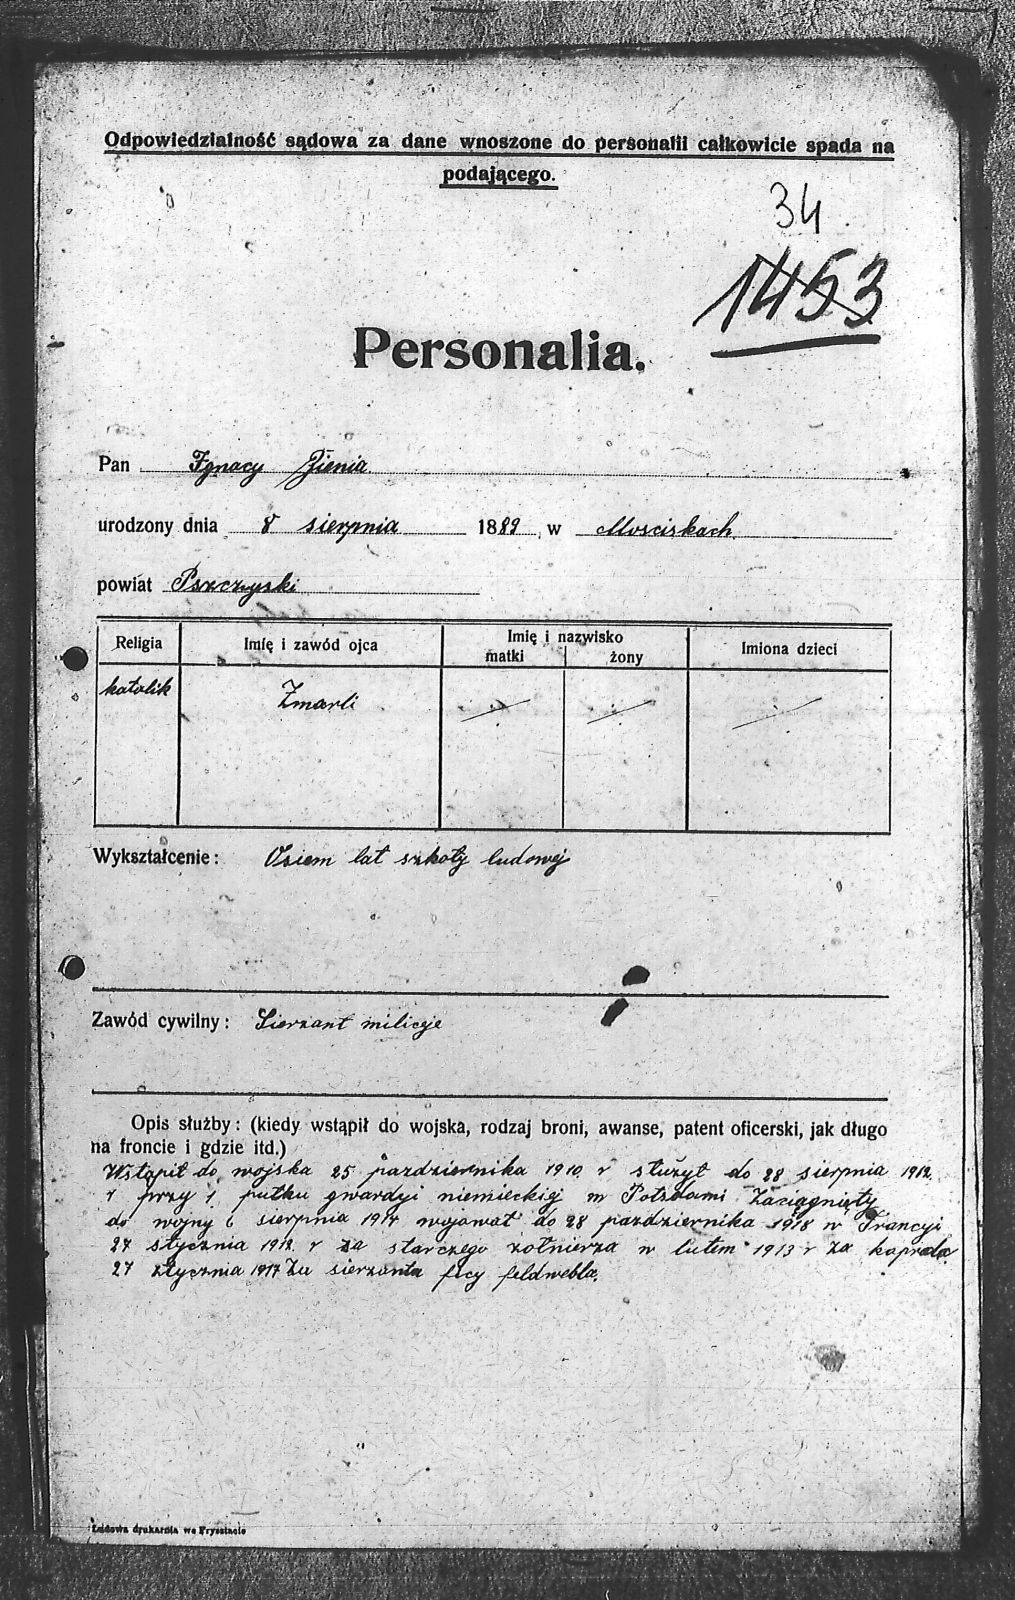 Odpowiedzialność sądowa za dane wnoszone do personalii całkowicie spada na
podającego.
34
1453
Personalia.
Pan Ignacy Zienia
urodzony dnia 8 sierpnia 1889 w Mosciskach
powiat Pszczyski
Religia
Imię i zawód ojca
Imię i nazwisko
matki
żony
Imiona dzieci
katolik
Zmarli
Wykształcenie: Osiem lat szkoły ludowej
Zawód cywilny: Sierzant milicyje
Opis służby: (kiedy wstąpił do wojska, rodzaj broni, awanse, patent oficerski, jak długo
na froncie i gdzie itd.)
Wstąpił do wojska 25 pazdziernika 1910 r służył do 28 sierpnia 1912
r przy 1 pułku gwardyi niemieckij w Potsdami Zaciągnięty
do wojny 6 sierpnia 1914 wojował do 28 pazdziernika 1918 w Francyi
27 stycznia 1912 r za starczego zołnierza w lutem 1913 r za kaprala
27 stycznia 1917 Za sierzanta feldwebla.
Ludowa drukarnia we Frysztacie